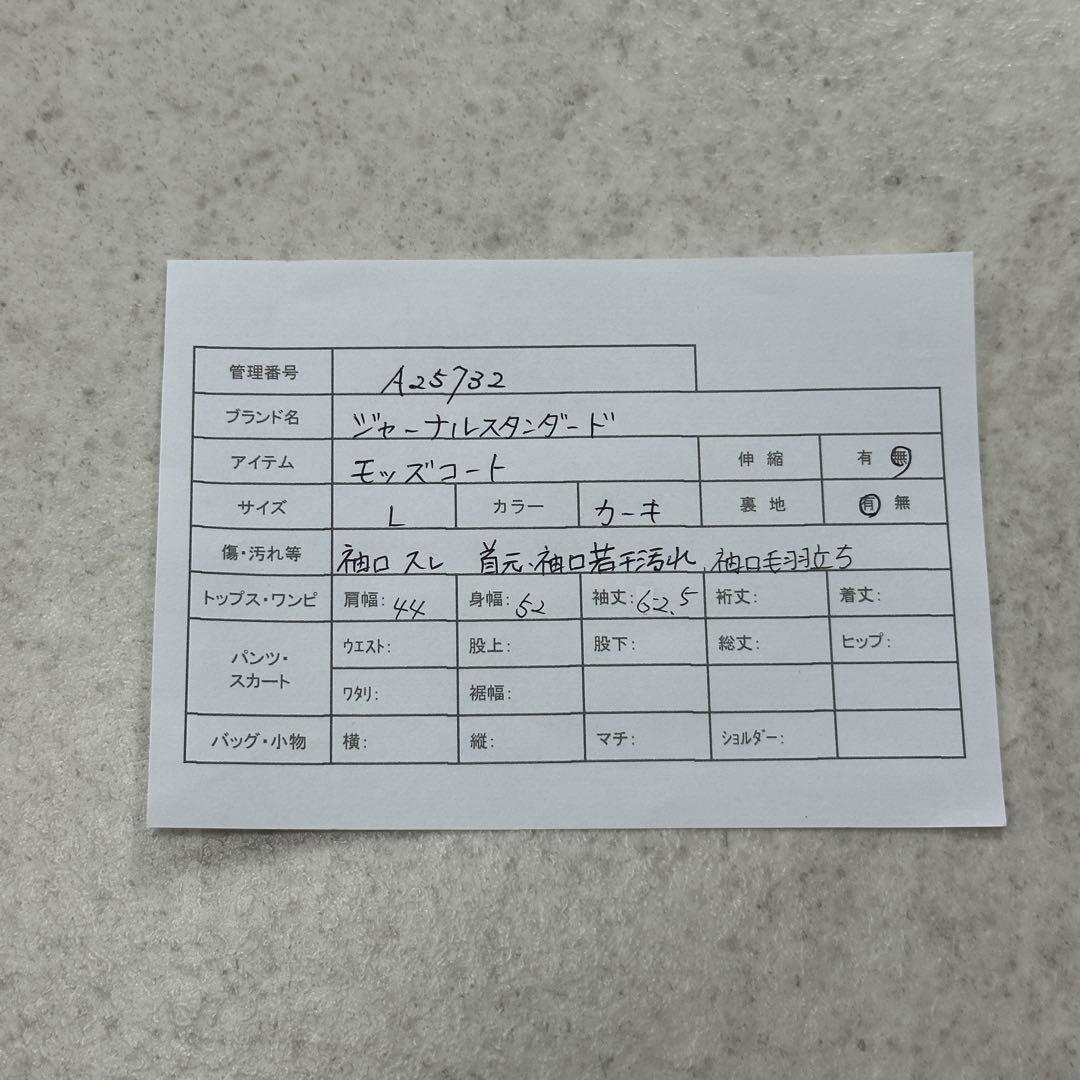 管理番号 A25732
ブランド名 ジャーナルスタンダード
アイテム モッズコート 伸縮 有 無
サイズ L カラー カーキ 裏地 有 無
傷・汚れ等 袖口スレ 首元、袖口若干汚れ、袖口毛羽立ち
トップス・ワンピ 肩幅: 44 身幅: 52 袖丈: 62.5 裄丈: 着丈:
パンツ・スカート ウエスト: 股上: 股下: 総丈: ヒップ:
ワタリ: 裾幅:
バッグ・小物 横: 縦: マチ: ショルダー: